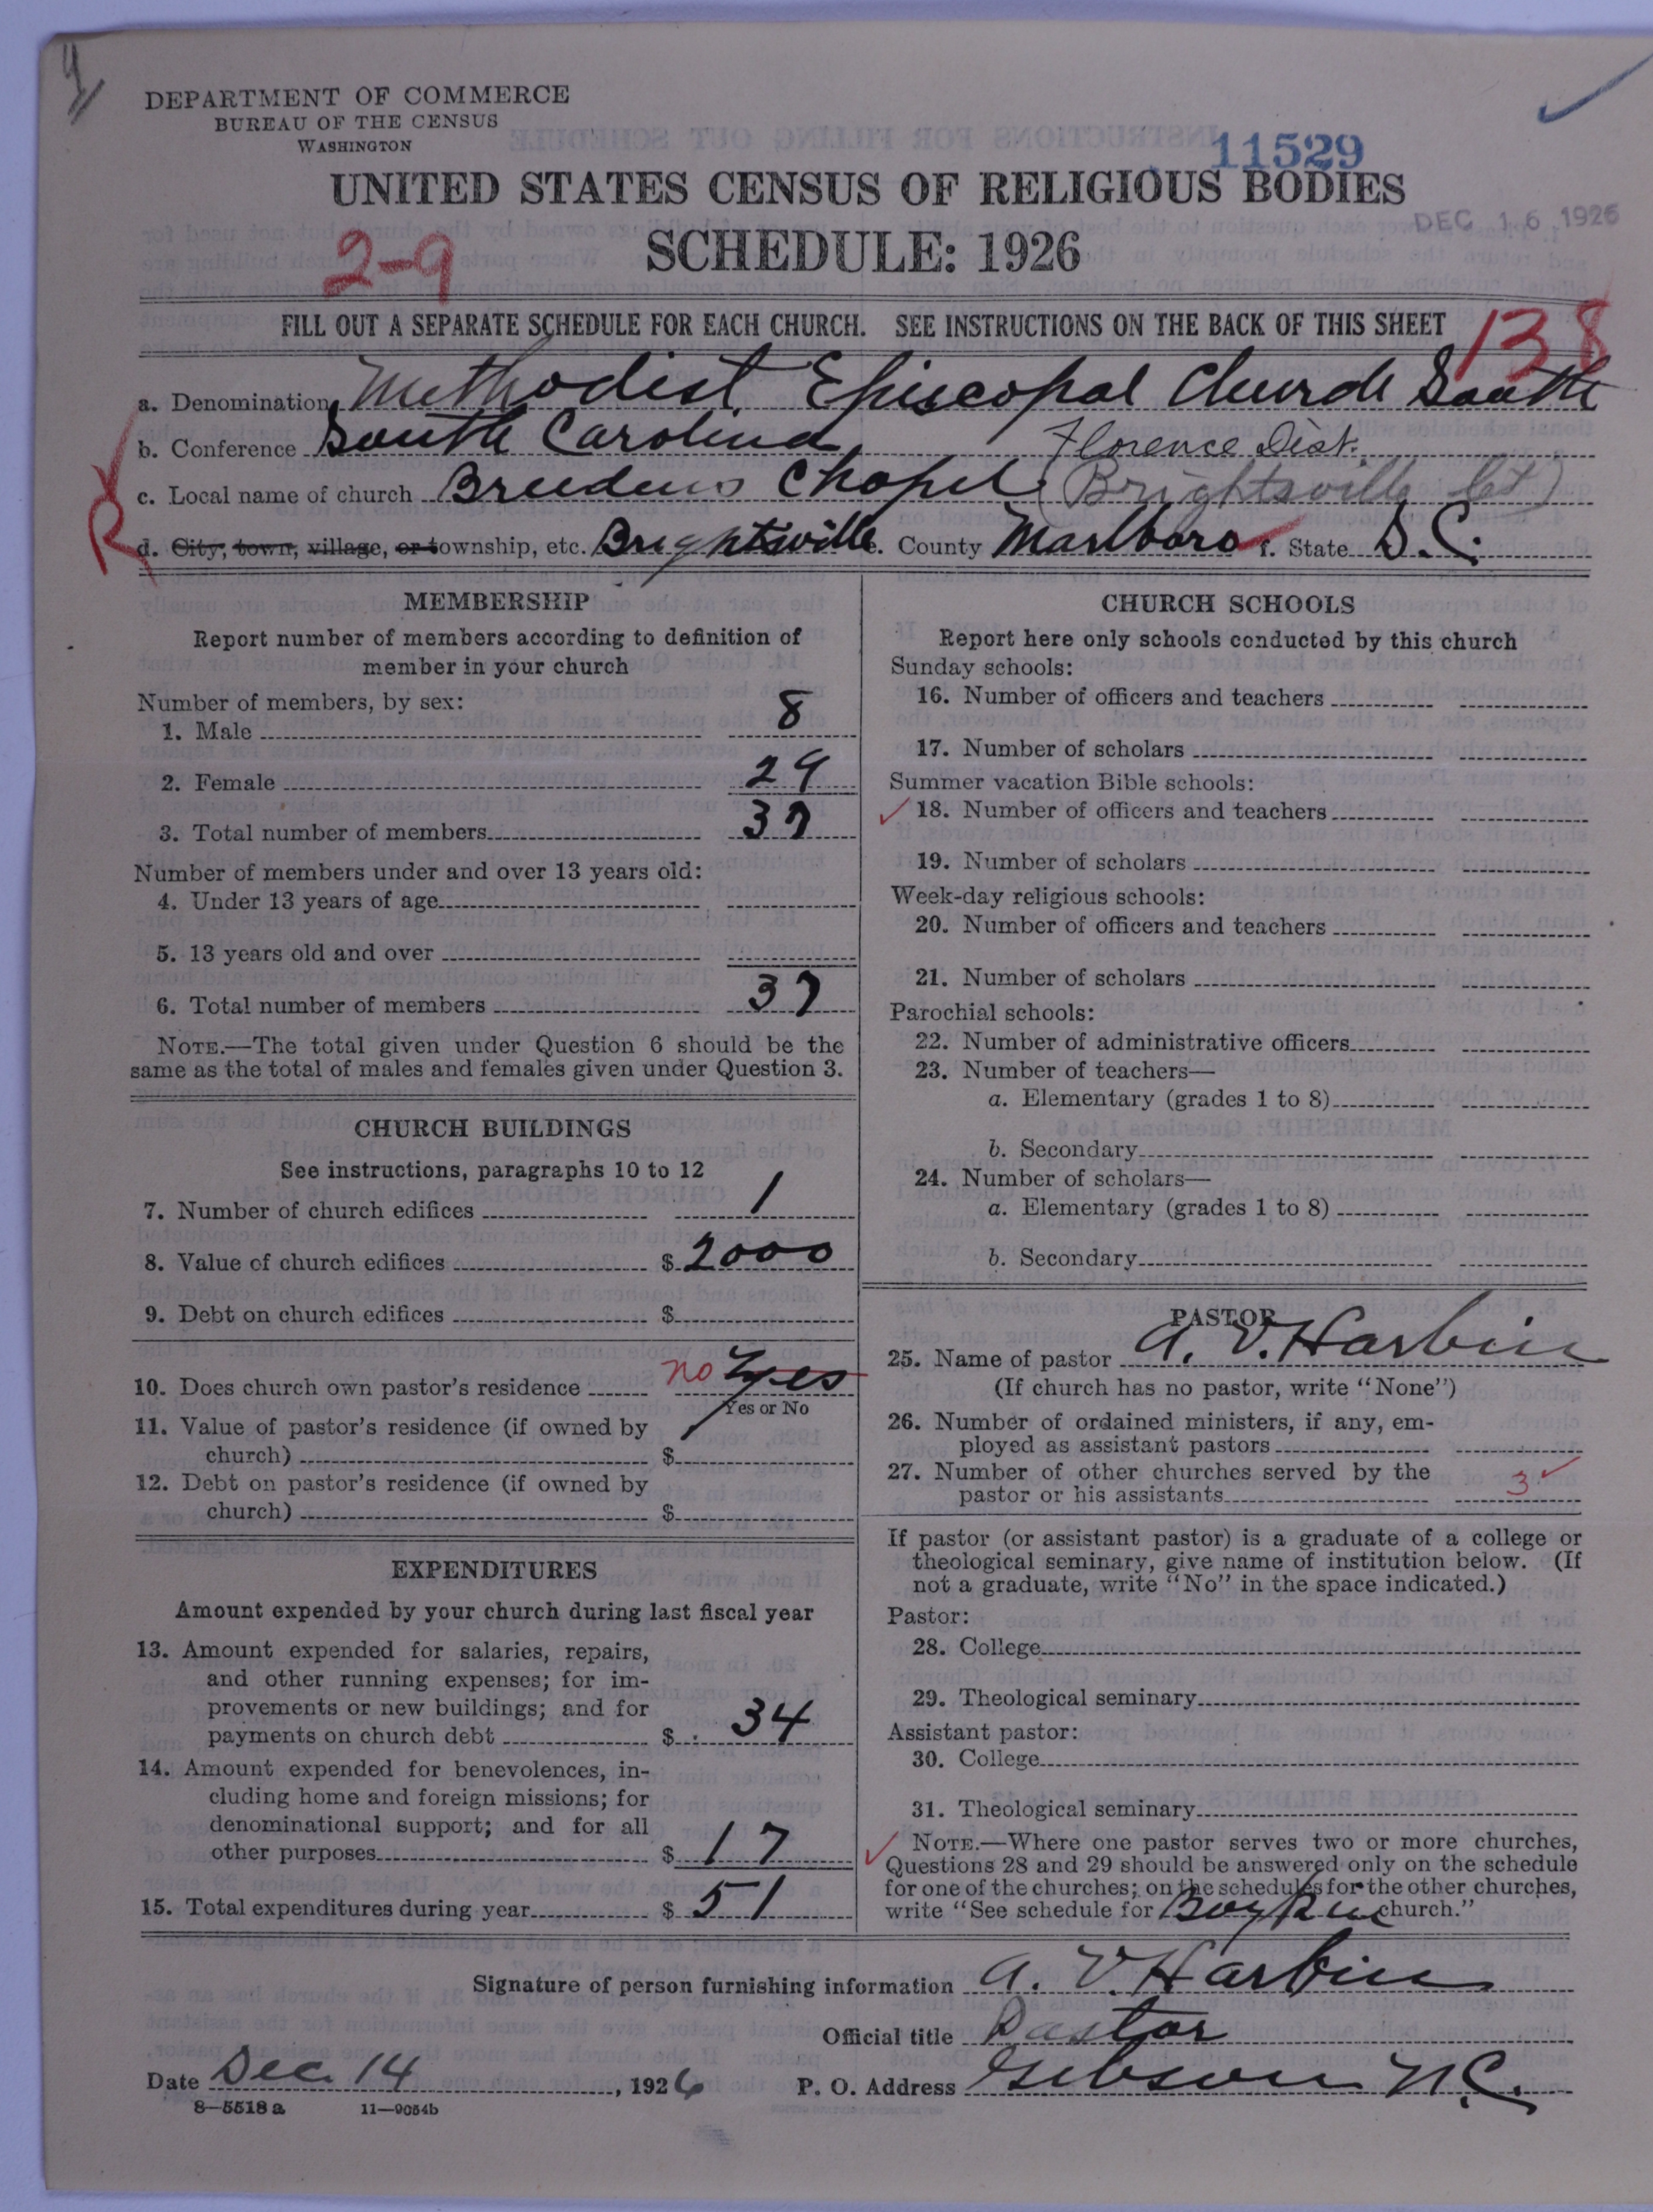 DEPARTMENT OF COMMERCE
BUREAU OF THE CENSUS
WASHINGTON
11529
UNITED STATES CENSUS OF RELIGIOUS BODIES
DEC 16 1926
2-9 SCHEDULE: 1926
FILL OUT A SEPARATE SCHEDULE FOR EACH CHURCH. SEE INSTRUCTIONS ON THE BACK OF THIS SHEET
138
a. Denomination Methodist Episcopal Church South
b. Conference South Carolina Florence Dist.
c. Local name of church Breedens Chapel (Brightsville Ct)
R
d. City, town, village, or township, etc. Brightsville e. County Marlboro f. State S.C.
MEMBERSHIP
Report number of members according to definition of
member in your church
Number of members, by sex:
1. Male 8
2. Female 29
3. Total number of members 37
Number of members under and over 13 years old:
4. Under 13 years of age
5. 13 years old and over
6. Total number of members 37
NOTE.—The total given under Question 6 should be the
same as the total of males and females given under Question 3.
CHURCH BUILDINGS
See instructions, paragraphs 10 to 12
7. Number of church edifices 1
8. Value of church edifices $ 2000
9. Debt on church edifices $
10. Does church own pastor's residence no yes
Yes or No
11. Value of pastor's residence (if owned by
church) $
12. Debt on pastor's residence (if owned by
church) $
EXPENDITURES
Amount expended by your church during last fiscal year
13. Amount expended for salaries, repairs,
and other running expenses; for im-
provements or new buildings; and for
payments on church debt $ 34
14. Amount expended for benevolences, in-
cluding home and foreign missions; for
denominational support; and for all
other purposes $ 17
15. Total expenditures during year $ 51
CHURCH SCHOOLS
Report here only schools conducted by this church
Sunday schools:
16. Number of officers and teachers
17. Number of scholars
Summer vacation Bible schools:
18. Number of officers and teachers
19. Number of scholars
Week-day religious schools:
20. Number of officers and teachers
21. Number of scholars
Parochial schools:
22. Number of administrative officers
23. Number of teachers—
a. Elementary (grades 1 to 8)
b. Secondary
24. Number of scholars—
a. Elementary (grades 1 to 8)
b. Secondary
PASTOR
25. Name of pastor A. V. Harbin
(If church has no pastor, write "None")
26. Number of ordained ministers, if any, em-
ployed as assistant pastors
27. Number of other churches served by the
pastor or his assistants 3
If pastor (or assistant pastor) is a graduate of a college or
theological seminary, give name of institution below. (If
not a graduate, write "No" in the space indicated.)
Pastor:
28. College
29. Theological seminary
Assistant pastor:
30. College
31. Theological seminary
NOTE.—Where one pastor serves two or more churches,
Questions 28 and 29 should be answered only on the schedule
for one of the churches; on the schedules for the other churches,
write "See schedule for Boykin church."
Signature of person furnishing information A. V. Harbin
Official title Pastor
Date Dec. 14, 1926 P. O. Address Gibson N.C.
8—5518 a 11—9054b